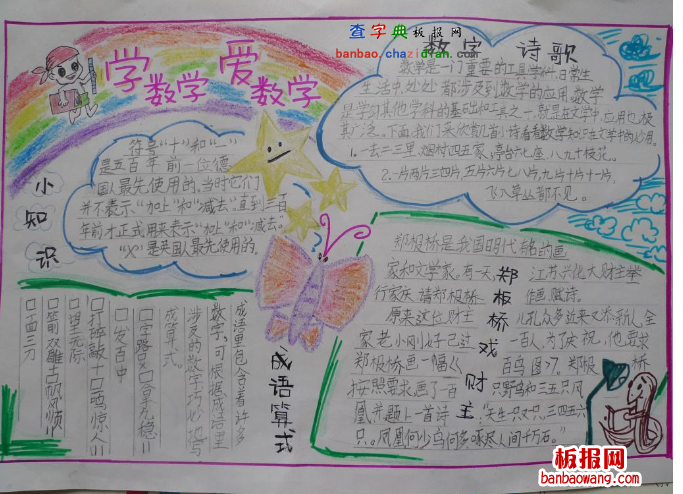 查字典板报网
banbao.chazidian.com
学数学 爱数学
小知识
符号“十”和“一”
是五百年前一位德
国人最先使用的,当时它们
并不表示“加上”和“减去”。直到三百
年前才正式用来表示“加上”和“减去”。
“X”是英国人最先使用的。
数字 诗歌
数学是一门重要的工具学科,日常生
生活中,处处都涉及到数学的应用。数学
是学习其他学科的基础和工具之一,就是在文学中,应用也极
其广泛。下面,我们来欣赏几首小诗看看数学知识在文学中的妙用。
1、一去二三里,烟村四五家,亭台六七座,八九十枝花。
2、一片两片三四片,五片六片七八片,九片十片十一片,
飞入草丛都不见。
成语算式
成语里包含着许多
数字,可根据成语里
涉及的数字巧妙把写
成算式。
□字路□□含无稳=
□发百中
打掉敲十□鸣惊人=
□望无际
□箭双雕古帆风顺=
□面三刀
郑板桥戏财主
郑板桥是我国明代铭的画
家和文学家。有一天,江苏兴化大财主举
行家庆,请郑板桥 值赋诗。
原来这位财主
百鸟图>7。郑板桥
郑板桥画一幅<<
按照要求画了一百 只野鸟和三五只凤
凰,并题上一首诗
只。凤凰何少鸟何多,啄尽人间千万石。”
板报网
banbaowang.com